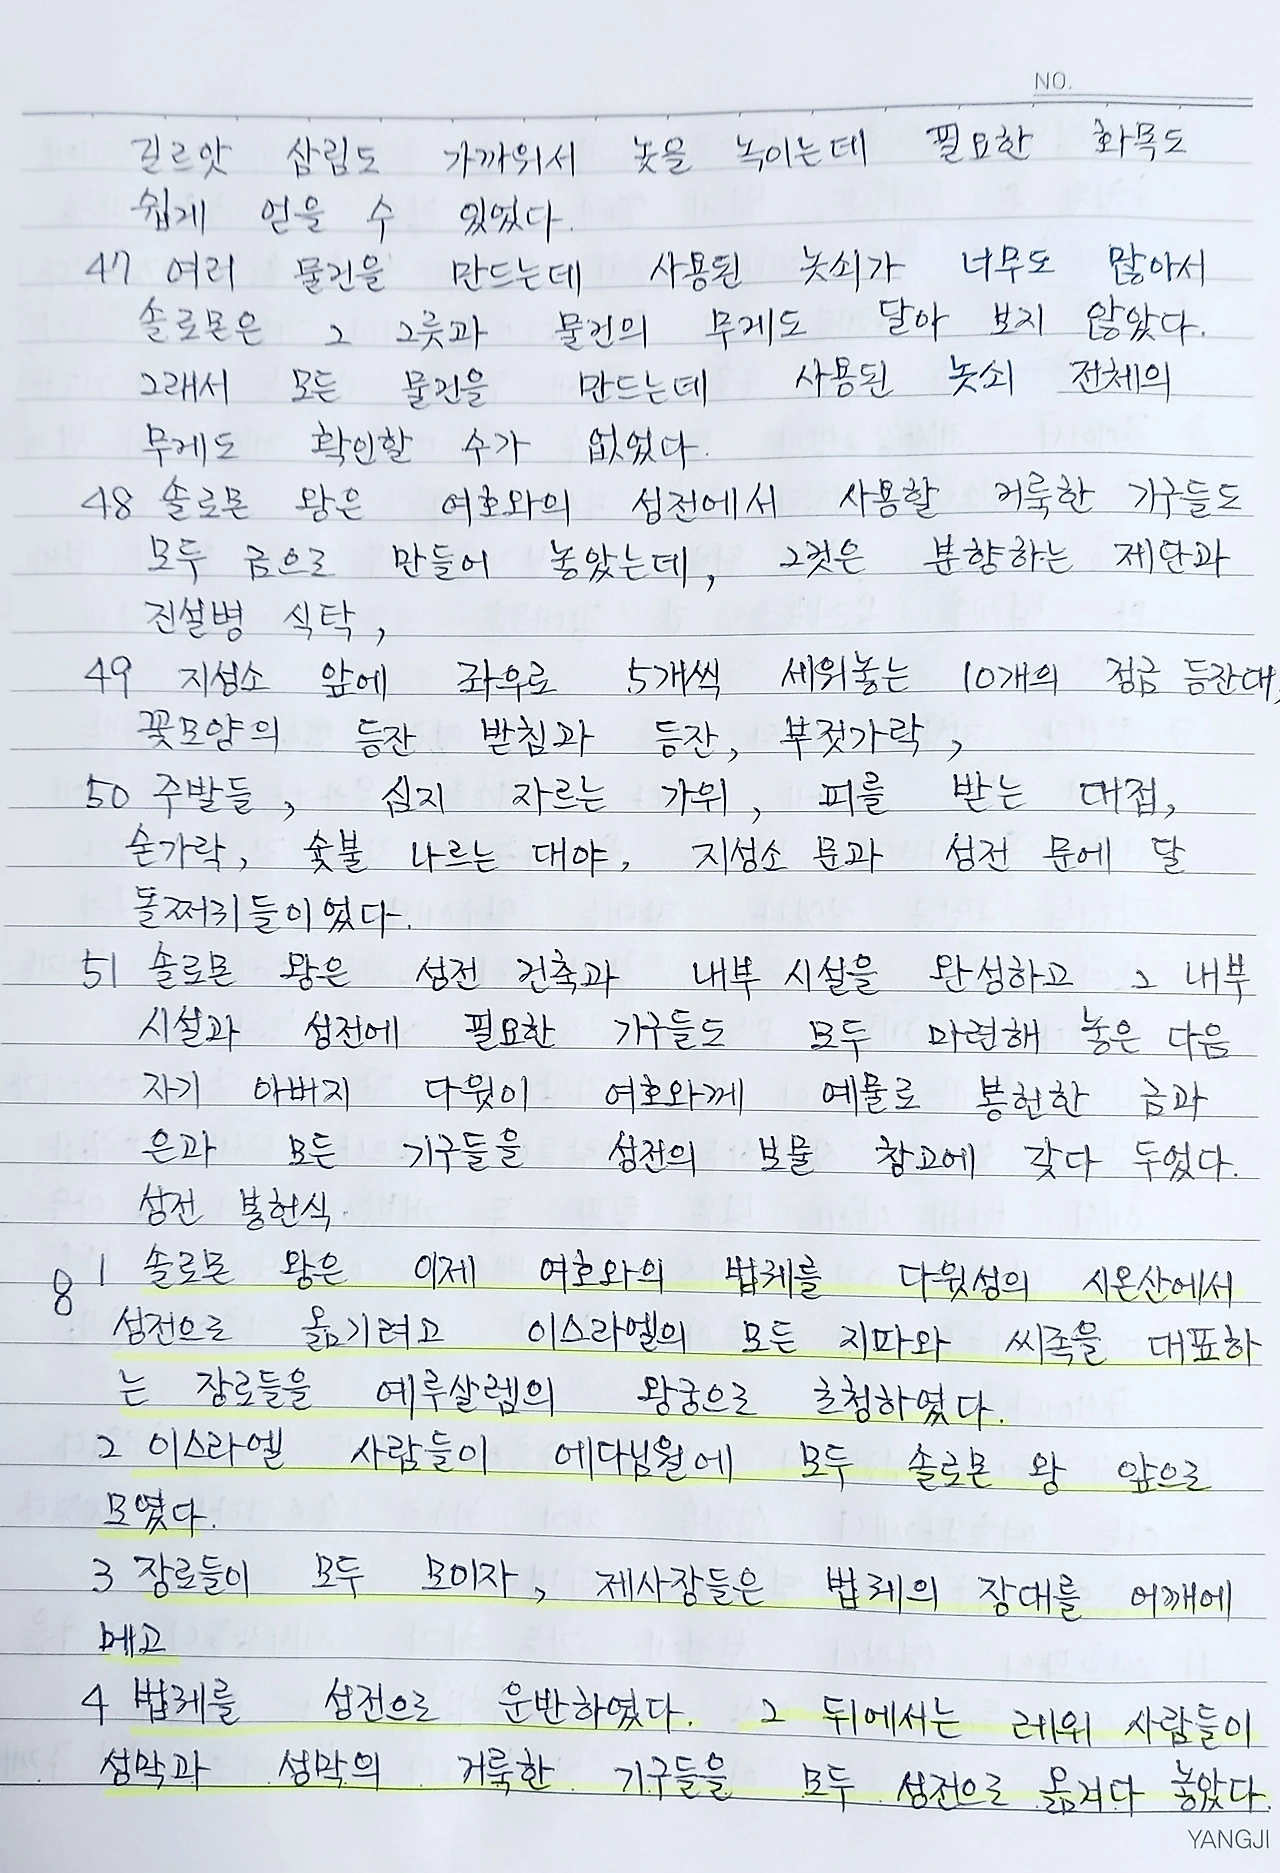 NO.
길르앗 삼림도 가까워서 놋을 녹이는데 필요한 화목도
쉽게 얻을 수 있었다.
47 여러 물건을 만드는데 사용된 놋쇠가 너무도 많아서
솔로몬은 그 그릇과 물건의 무게도 달아 보지 않았다.
그래서 모든 물건을 만드는데 사용된 놋쇠 전체의
무게도 확인할 수가 없었다.
48 솔로몬 왕은 여호와의 성전에서 사용할 거룩한 기구들도
모두 금으로 만들어 놓았는데, 그것은 분향하는 제단과
진설병 식탁,
49 지성소 앞에 좌우로 5개씩 세워놓는 10개의 정금 등잔대,
꽃모양의 등잔 받침과 등잔, 부젓가락,
50 주발들, 심지 자르는 가위, 피를 받는 대접,
숟가락, 숯불 나르는 대야, 지성소 문과 성전 문에 달
돌쩌귀들이었다.
51 솔로몬 왕은 성전 건축과 내부 시설을 완성하고 그 내부
시설과 성전에 필요한 기구들도 모두 마련해 놓은 다음
자기 아버지 다윗이 여호와께 예물로 봉헌한 금과
은과 모든 기구들을 성전의 보물 창고에 갖다 두었다.
성전 봉헌식.
8 1 솔로몬 왕은 이제 여호와의 법궤를 다윗성의 시온산에서
성전으로 옮기려고 이스라엘의 모든 지파와 씨족을 대표하
는 장로들을 예루살렘의 왕궁으로 초청하였다.
2 이스라엘 사람들이 에다님월에 모두 솔로몬 왕 앞으로
모였다.
3 장로들이 모두 모이자, 제사장들은 법궤의 장대를 어깨에
메고
4 법궤를 성전으로 운반하였다. 그 뒤에서는 레위 사람들이
성막과 성막의 거룩한 기구들을 모두 성전으로 옮겨다 놓았다.
YANGJI